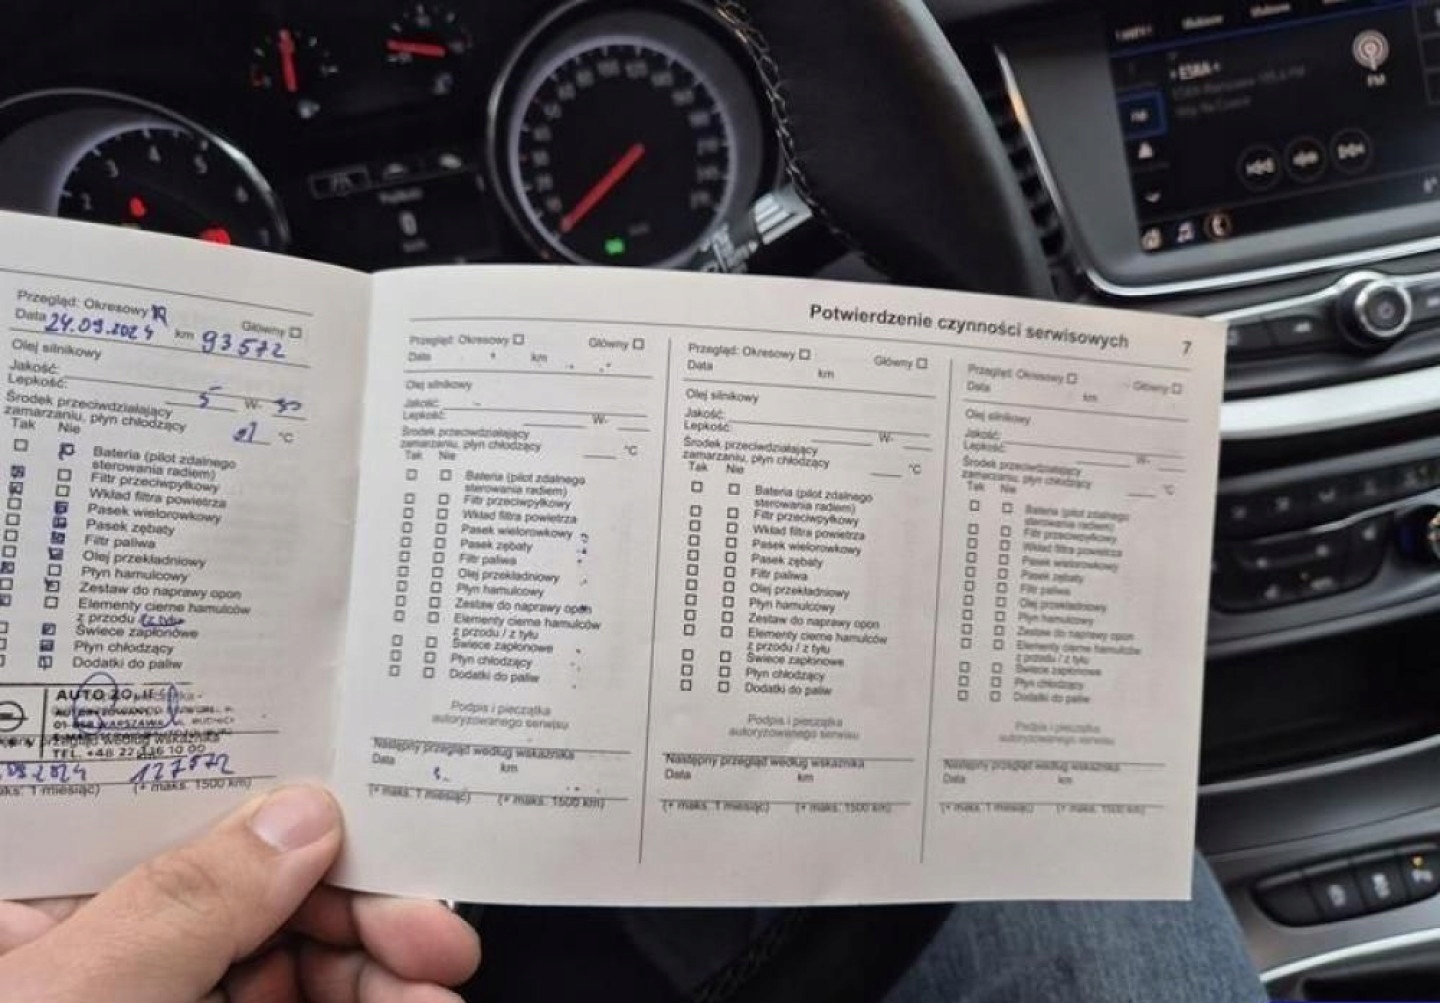 ESKA
FM
Potwierdzenie czynności serwisowych 7
Przegląd: Okresowy Główny
Data 24.09.2024 km 93572
Olej silnikowy
Jakość:
Lepkość: 5 W- 30
Środek przeciwdziałający
zamarzaniu, płyn chłodzący °C
Tak Nie
Bateria (pilot zdalnego
sterowania radiem)
Filtr przeciwpyłkowy
Wkład filtra powietrza
Pasek wielorowkowy
Pasek zębaty
Filtr paliwa
Olej przekładniowy
Płyn hamulcowy
Zestaw do naprawy opon
Elementy cierne hamulców
z przodu / z tyłu
Świece zapłonowe
Płyn chłodzący
Dodatki do paliw
AUTO ŻO
WARSZAWA
przegląd według wskaźnika
TEL. +48 22 336 10 00
127572
1 miesiąc) (+ maks. 1500 km)
Przegląd: Okresowy Główny
Data km
Olej silnikowy
Jakość:
Lepkość: W-
Środek przeciwdziałający
zamarzaniu, płyn chłodzący °C
Tak Nie
Bateria (pilot zdalnego
sterowania radiem)
Filtr przeciwpyłkowy
Wkład filtra powietrza
Pasek wielorowkowy
Pasek zębaty
Filtr paliwa
Olej przekładniowy
Płyn hamulcowy
Zestaw do naprawy opon
Elementy cierne hamulców
z przodu / z tyłu
Świece zapłonowe
Płyn chłodzący
Dodatki do paliw
Podpis i pieczątka
autoryzowanego serwisu
Następny przegląd według wskaźnika
Data km
(+ maks. 1 miesiąc) (+ maks. 1500 km)
Przegląd: Okresowy Główny
Data km
Olej silnikowy
Jakość:
Lepkość: W-
Środek przeciwdziałający
zamarzaniu, płyn chłodzący °C
Tak Nie
Bateria (pilot zdalnego
sterowania radiem)
Filtr przeciwpyłkowy
Wkład filtra powietrza
Pasek wielorowkowy
Pasek zębaty
Filtr paliwa
Olej przekładniowy
Płyn hamulcowy
Zestaw do naprawy opon
Elementy cierne hamulców
z przodu / z tyłu
Świece zapłonowe
Płyn chłodzący
Dodatki do paliw
Podpis i pieczątka
autoryzowanego serwisu
Następny przegląd według wskaźnika
Data km
(+ maks. 1 miesiąc) (+ maks. 1500 km)
Przegląd: Okresowy Główny
Data km
Olej silnikowy
Jakość:
Lepkość: W-
Środek przeciwdziałający
zamarzaniu, płyn chłodzący °C
Tak Nie
Bateria (pilot zdalnego
sterowania radiem)
Filtr przeciwpyłkowy
Wkład filtra powietrza
Pasek wielorowkowy
Pasek zębaty
Filtr paliwa
Olej przekładniowy
Płyn hamulcowy
Zestaw do naprawy opon
Elementy cierne hamulców
z przodu / z tyłu
Świece zapłonowe
Płyn chłodzący
Dodatki do paliw
Podpis i pieczątka
autoryzowanego serwisu
Następny przegląd według wskaźnika
Data km
(+ maks. 1 miesiąc) (+ maks. 1500 km)